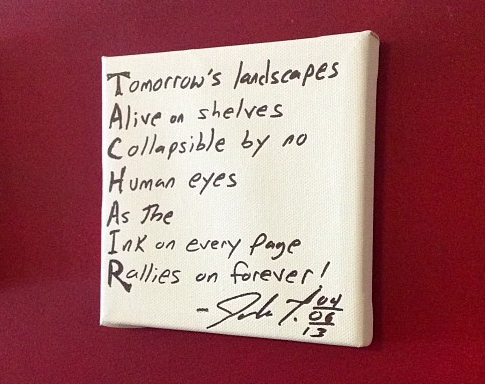 Tomorrow's landscapes
Alive on shelves
Collapsible by no
Human eyes
As The
Ink on every page
Rallies on forever!
04
06
13